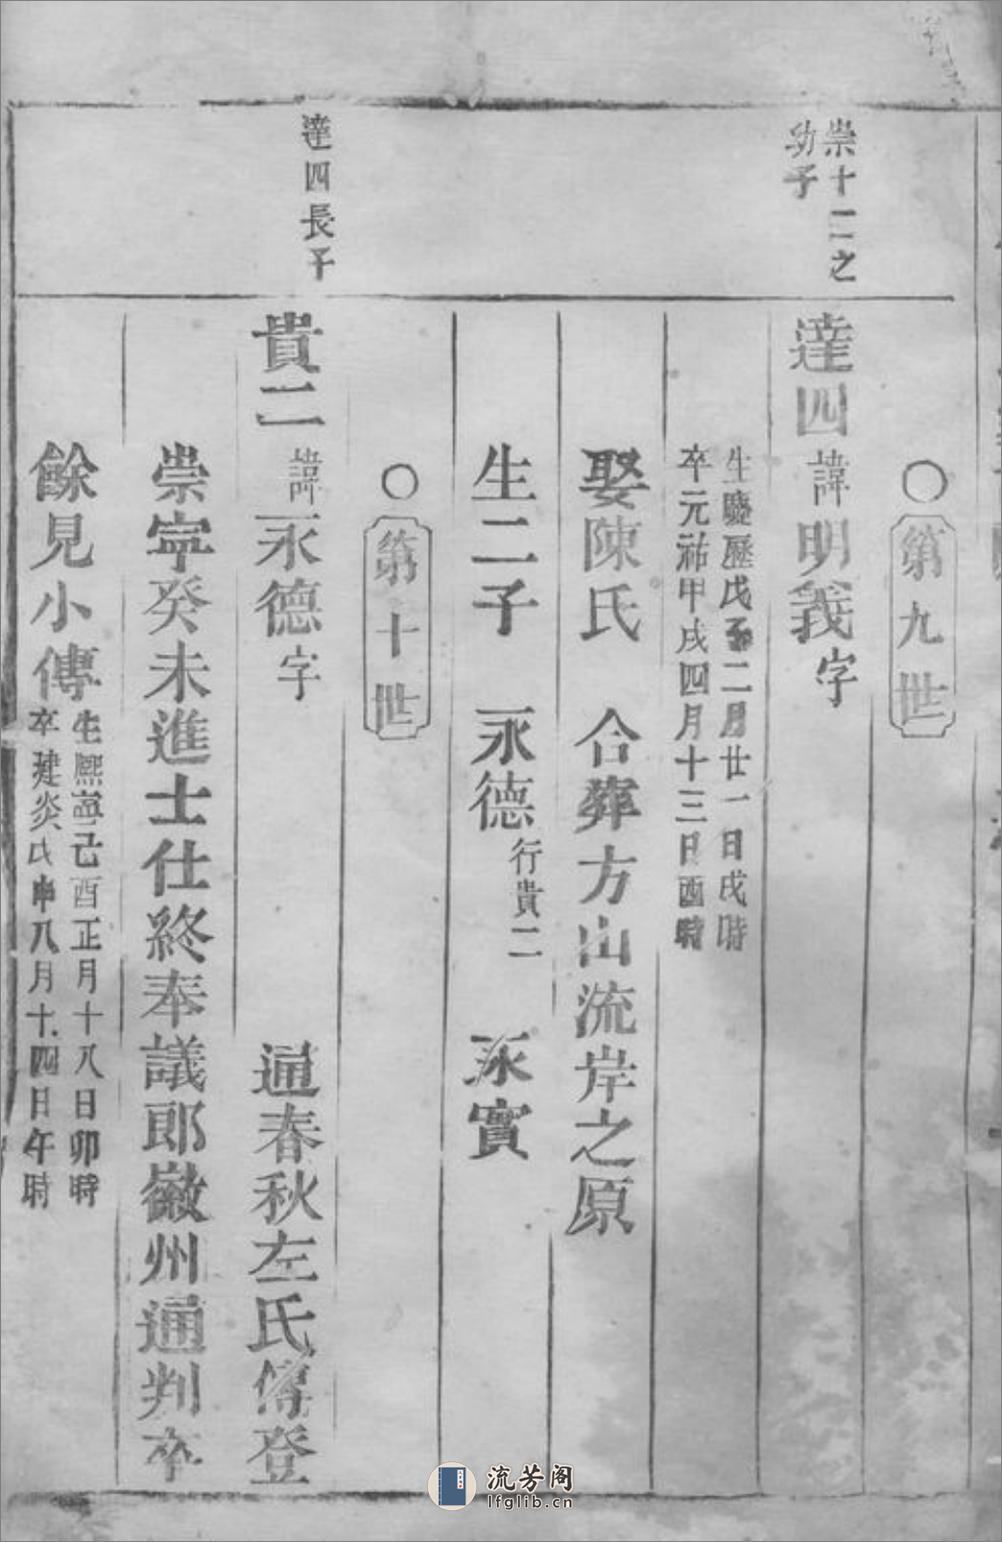 ○第九世
崇十二之
幼子
達四諱明義字
生慶歷戊子二月廿一日戌時
卒元祐甲戌四月十三日酉時
娶陳氏 合葬方山流岸之原
生二子 永德行貴二 永實
○第十世
達四長子
貴二諱永德字 通春秋左氏傳登
崇寧癸未進士仕終奉議郎徽州通判卒
餘見小傳
生熙寧己酉正月十八日卯時
卒建炎戊申八月十四日午時
流芳阁
lfglib.cn